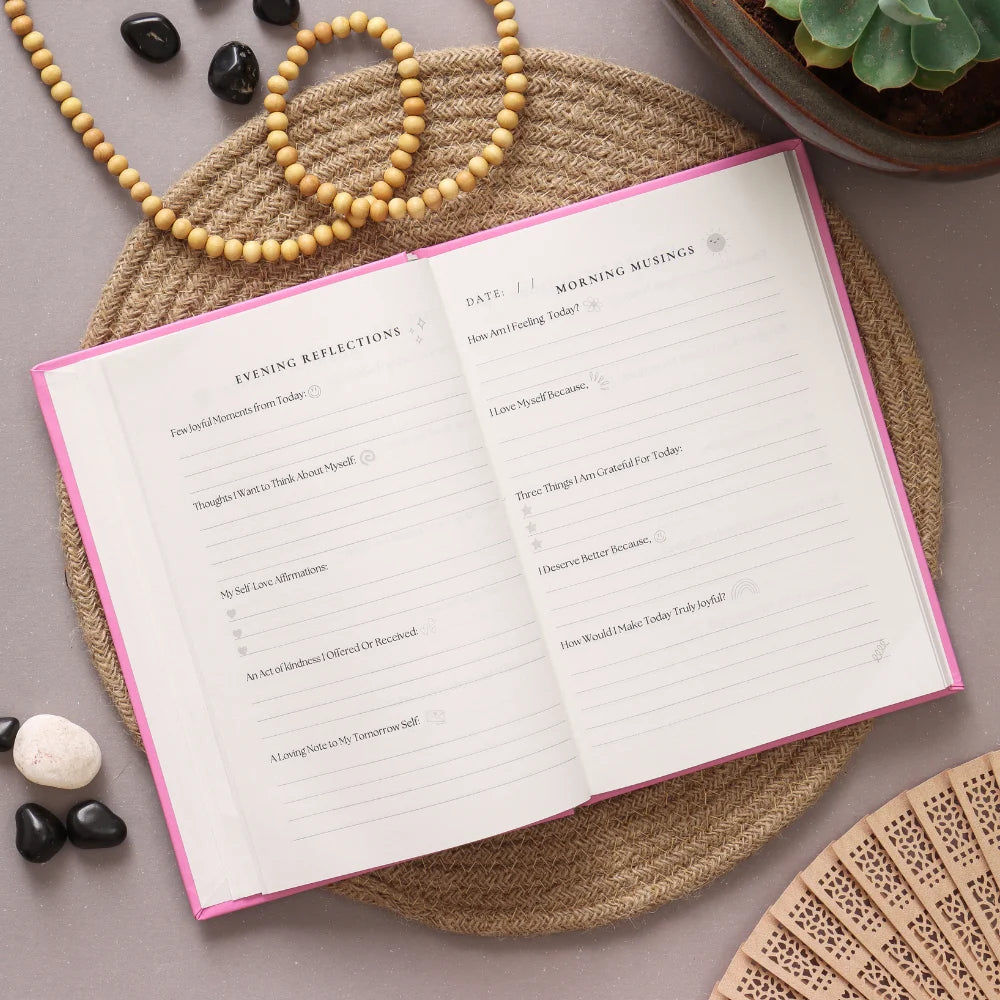 EVENING REFLECTIONS
Few Joyful Moments from Today:
Thoughts I Want to Think About Myself:
My Self Love Affirmations:
An Act of kindness I Offered Or Received:
A Loving Note to My Tomorrow Self:
DATE: / / MORNING MUSINGS
How Am I Feeling Today?
I Love Myself Because,
Three Things I Am Grateful For Today:
I Deserve Better Because,
How Would I Make Today Truly Joyful?